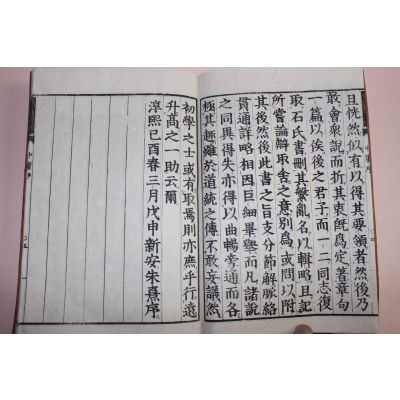 且恍然似有以得其要領者然後乃
敢會衆說而折其衷旣爲定著章句
一篇以俟後之君子而一二同志復
取石氏書刪其繁亂名以輯略且記
所嘗論辯取舍之意別爲或問以附
其後然後此書之旨支分節解脈絡
貫通詳略相因巨細畢舉而凡諸說
之同異得失亦得以曲暢旁通而各
極其趣雖於道統之傳不敢妄議然
初學之士或有取焉則亦庶乎行遠
升高之一助云爾
淳熙己酉春三月戊申新安朱熹序